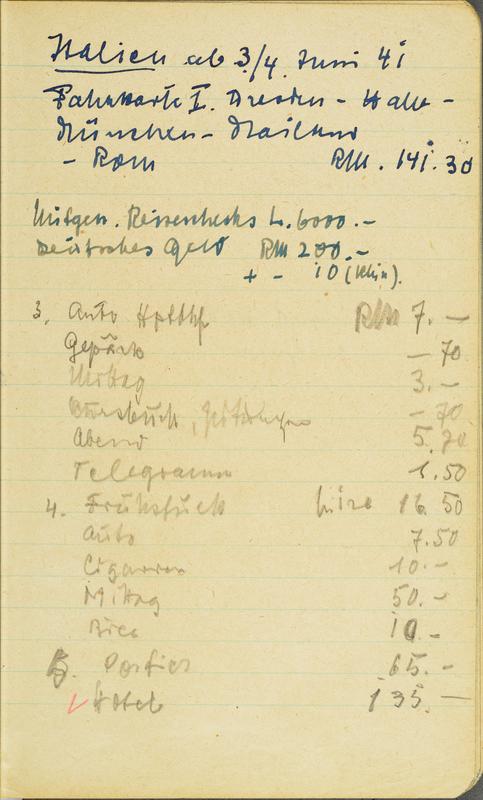 Italien ab 3/4. Juni 41
Fahrkarte I. Dresden - Halle -
München - Mailand
- Rom RM. 141.30
Mitgen. Reiseschecks L. 6000.-
Deutsches Geld RM 200.-
+ - 10 (Klein).
3. Auto Hptbhf RM 7.-
Gepäck - 70
Mittag 3.-
Kursbuch, Zeitungen - 70
Abend 5.20
Telegramm 1.50
4. Frühstück Lire 16.50
Auto 7.50
Cigarren 10.-
Mittag 50.-
Bier 10.-
5. Portier 65.-
Hotel 135.-